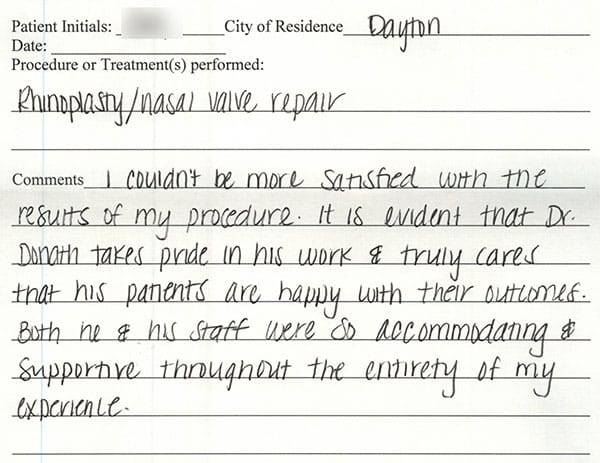 Patient Initials: City of Residence Dayton
Date:
Procedure or Treatment(s) performed:
Rhinoplasty/nasal valve repair
Comments I couldn't be more satisfied with the
results of my procedure. It is evident that Dr.
Donath takes pride in his work & truly cares
that his patients are happy with their outcomes.
Both he & his staff were so accommodating &
supportive throughout the entirety of my
experience.